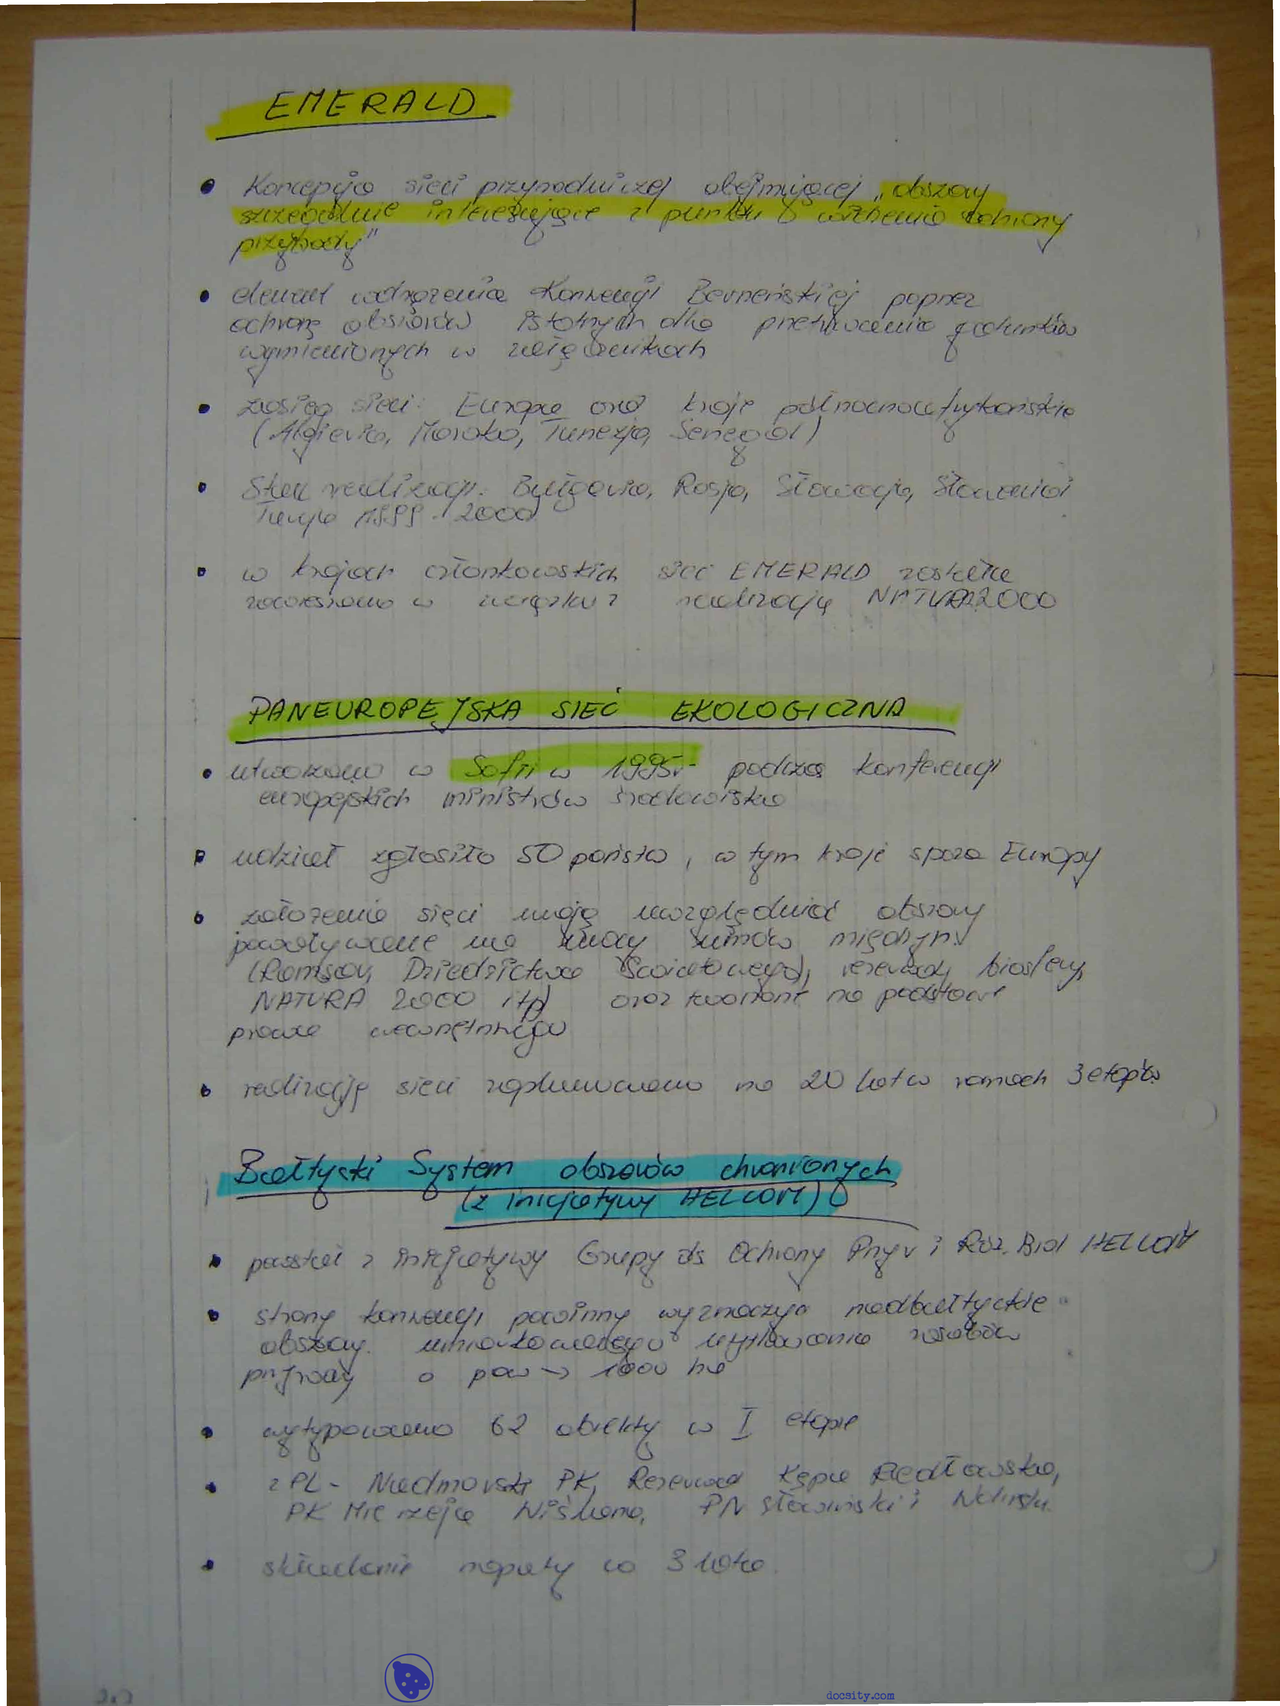 EMERALD
• Koncepcja sieci przyrodniczej obejmującej „obszary
szczególnie interesujące z punktu widzenia ochrony
przyrody"
• element wdrożenia Konwencji Berneńskiej poprzez
ochronę obszarów istotnych dla przetrwania gatunków
wymienionych w załącznikach
• zasięg sieci: Europa oraz kraje północnoafrykańskie
(Algieria, Maroko, Tunezja, Senegal)
• Stan realizacji: Bułgaria, Rosja, Słowacja, Słowenia
Turcja 1999 - 2000
• w krajach członkowskich sieć EMERALD została
zawieszona w związku z realizacją NATURA 2000
PANEUROPEJSKA SIEĆ EKOLOGICZNA
• utworzono w Sofii w 1995r podczas konferencji
europejskich ministrów środowiska
• udział zgłosiło 50 państw, w tym kraje spoza Europy
• założenia sieci mają uwzględniać obszary
powoływane na mocy umów międzyn.
(Ramsar, Dziedzictwa Światowego), rezerwaty biosfery,
NATURA 2000 itp) oraz tworzone na podstawie
prawa wewnętrznego
• realizację sieci zaplanowano na 20 lat w ramach 3 etapów
Bałtycki System obszarów chronionych
(z inicjatywy HELCOM)
• powstał z inicjatywy Grupy ds Ochrony Przyr i Róż. Biol HELCOM
• strony konwencji powinny wyznaczyć nadbałtyckie
obszary umiarkowanego użytkowania zasobów
przyrody o pow → 1000 ha
• wytypowano 62 obiekty w I etapie
• z PL - Nadmorski PK, Rezerwat Kępa Redłowska,
PK Mierzeja Wiślana, PN Słowiński i Woliński
• składanie raporty co 3 lata.
docsity.com